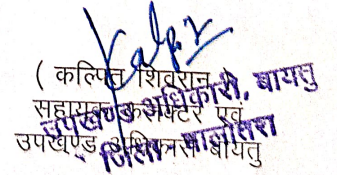 ( कल्पित शिवरान )
सहायक कलेक्टर एवं
उपखण्ड अधिकारी बायतु
उपखण्ड अधिकारी, बायतु
जिला - बालोतरा